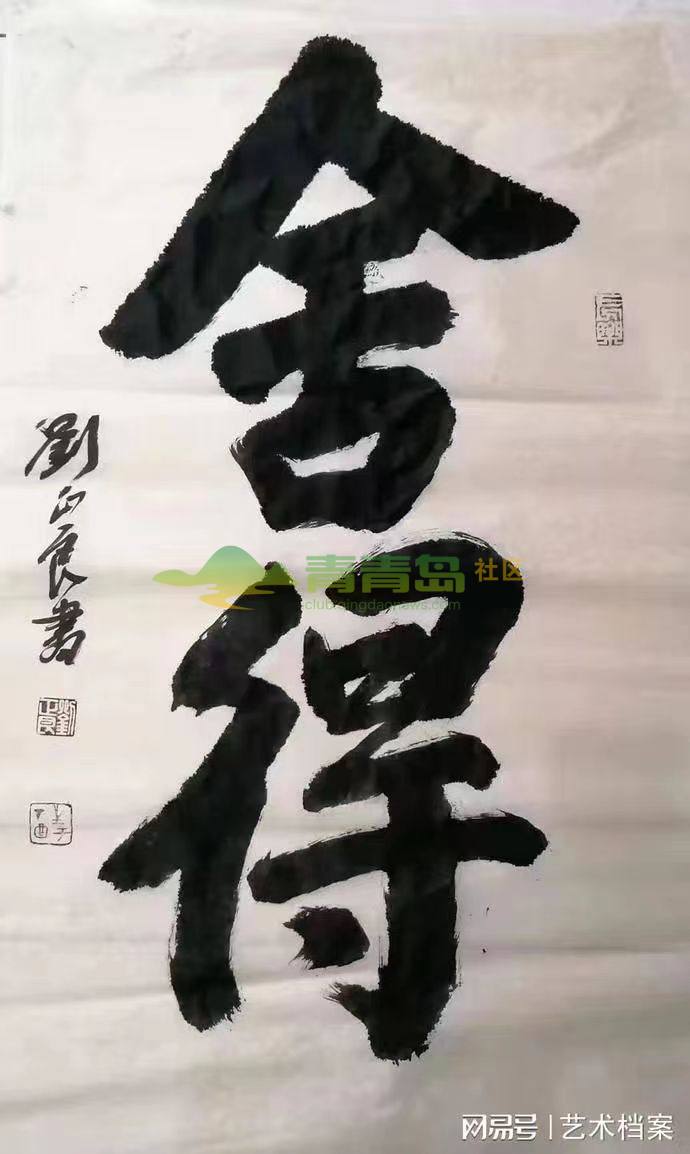 舍得
長樂
劉正良書
劉正良
青青岛社区
club.qingdaonews.com
网易号 | 艺术档案